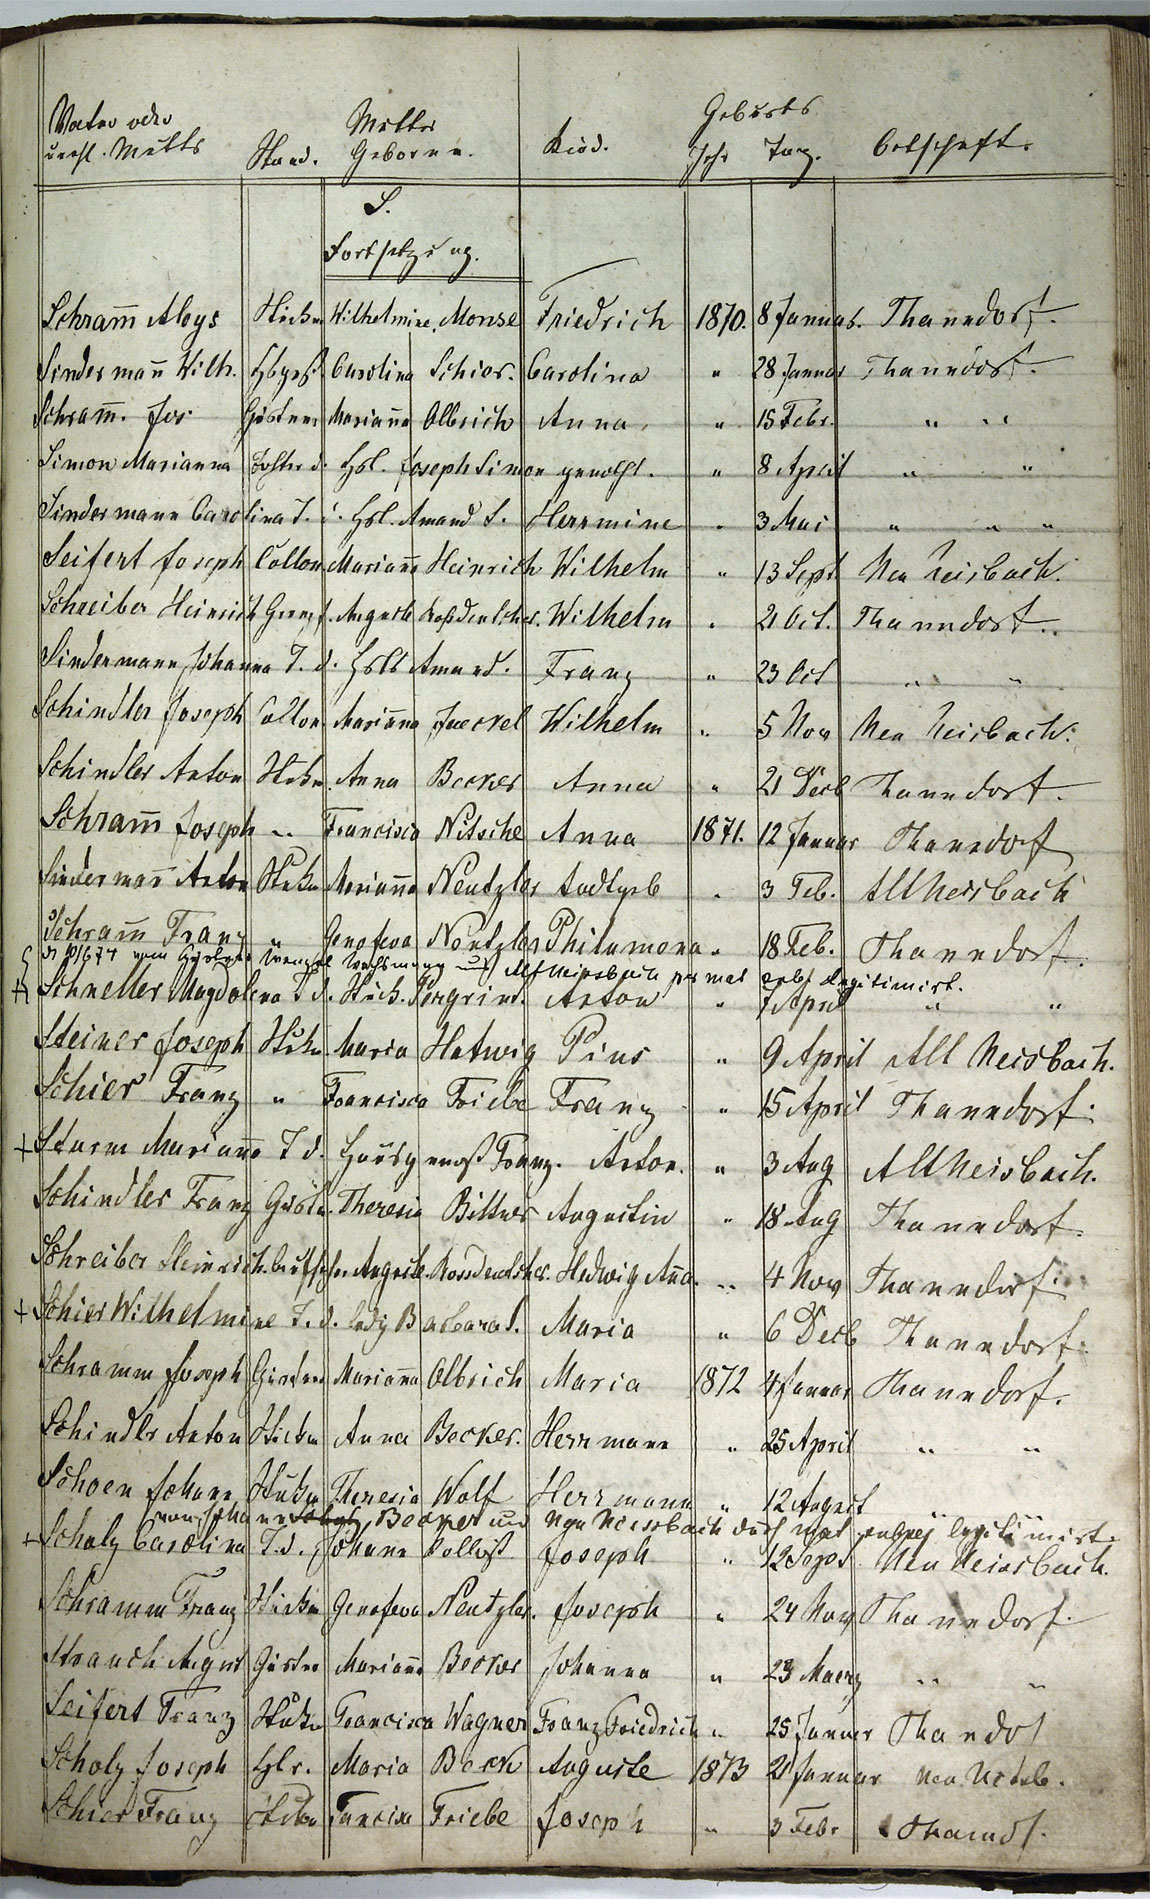 Vater oder unehl. Mutter Stand. Mutter Geborne. Kind. Geburts Jahr Tag. Ortschaft.
S.
Fortsetzung.
Schram̄ Aloys Stückm Wilhelmine Monse Friedrich 1870. 8 Januar. Thanndorf.
Sinderman̄ Wilh. Carolina Schier. Carolina " 28 Januar Thanndorf.
Schram̄. Jos Gärtner Marian̄a Olbrich Anna " 15 Febr. " "
Simon Marianna Tochter d. Hsl. Joseph Simon " 8 April " "
Sindermann Carolina T. d. Hsl. Amand S. Herrmine " 3 Mai " " "
Seifert Joseph Collon. Marian̄a Heinrich Wilhelm " 13 Sept Neu Neisbach.
Schreiber Heinrich Auguste Rossdeutscher. Wilhelm " 21 Oct. Thanndorf.
Sindermann Johanna T. d. Hslr Amand. Franz " 23 Oct " "
Schindler Joseph Collon. Marian̄a Jaeckel Wilhelm " 5 Nov Neu Neisbach.
Schindler Anton Stückm. Anna Becker Anna " 21 Decb Thanndorf.
Schram̄ Joseph " Francisca Nitsche Anna 1871. 12 Januar Thanndorf
Sinderman̄ Anton Stückm Marian̄a Neutzler todtgeb " 3 Feb. Alt Neisbach
Schram̄ Franz " Genofewa Neutzler Philumona " 18 Feb. Thanndorf.
Wenzel Alt Neisbach per mat legitimirt.
Schneller Magdalena T d. Stück. Peregrin. Anton " 7 April " "
Steiner Joseph Stückm Maria Hatwig Pius " 9 April Alt Neisbach.
Schier Franz " Francisca Triebe Franz " 15 April Thanndorf.
+ Sturm Marian̄a T d. Häusgenoß Franz. Anton. " 3 Aug Alt Neisbach.
Schindler Franz Gärtn. Theresia Bittner Augustin " 18 Aug Thanndorf.
Schreiber Heinrich. Auguste Rossdeutscher. Hedwig An̄a. " 4 Nov Thanndorf.
+ Schier Wilhelmine T. d. ledig Barbara S. Maria " 6 Decb Thanndorf.
Schramm Joseph Gärtner Marian̄a Olbrich Maria 1872 4 Januar Thanndorf.
Schindlr Anton Stückm Anna Becker. Herrmann " 25 April " "
Schoen Johann Stückm Theresia Wolf Herrmann " 12 August " "
von Johann Becker aus Neu Neissbach durch mat legitimirt.
+ Scholz Carolina T. d. Johann Joseph " 12 Sept Neu Neissbach.
Schramm Franz Stückm Genofewa Neutzler. Joseph " 24 Nov Thanndorf.
Strauch August Gärtner Marian̄a Becker Johanna " 23 Maerz " "
Seifert Franz Stückm Francisca Wagner Franz Friedrich " 25 Januar Thandof
Scholz Joseph Hslr. Maria Beck Auguste 1873 21 Januar Neu
Schier Franz Stückm Triebe Joseph " 3 Febr